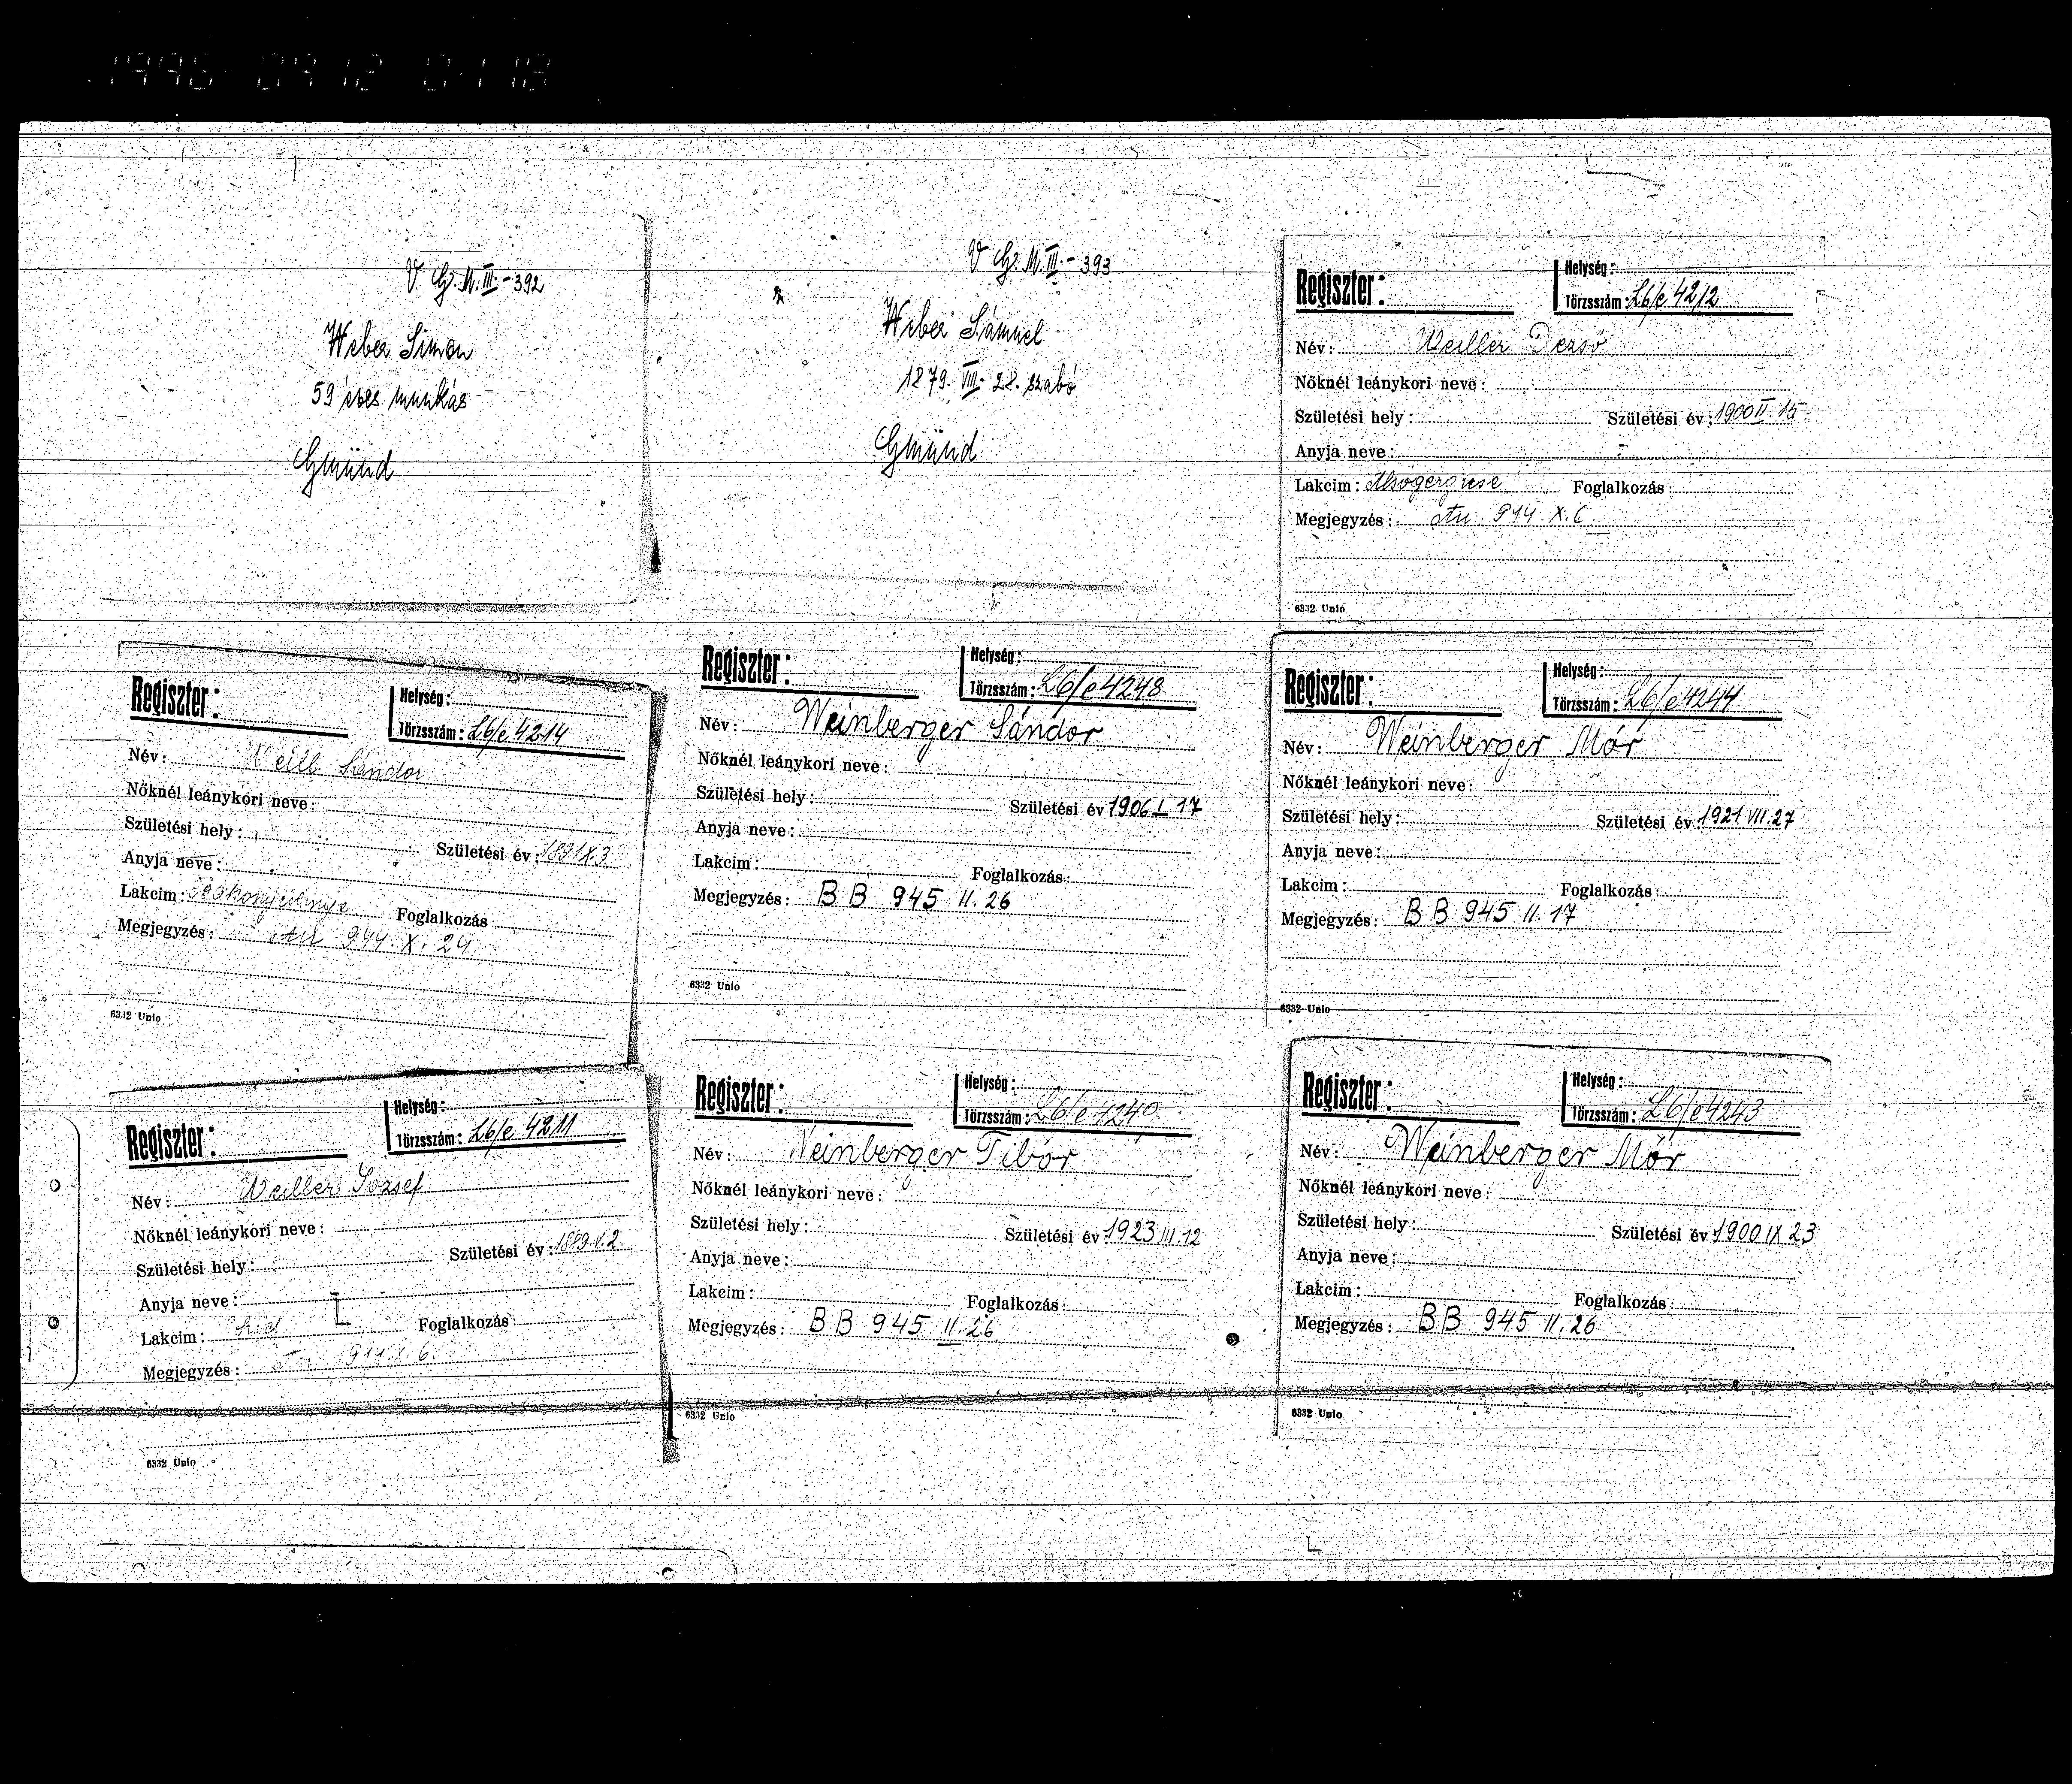 V Gz. M. III. - 392
Weber Simon
59 éves munkás
Gmünd
V Gz. M. III. - 393
Weber Sámuel
1879. VIII. 28. szabó
Gmünd
Regiszter:
Helység:
Törzsszám: L6/e 4212
Név: Weiller Dezső
Nőknél leánykori neve:
Születési hely: Születési év: 1900 II. 15
Anyja neve:
Lakcim: Foglalkozás:
Megjegyzés: Au. 944. X. 6.
6332 Unio
Regiszter:
Helység:
Törzsszám: L6/e 4214
Név: Weill Sándor
Nőknél leánykori neve:
Születési hely: Születési év: 1891 X 3
Anyja neve:
Lakcim: Foglalkozás
Megjegyzés: Au 944. X. 24
6332 Unio
Regiszter:
Helység:
Törzsszám: L6/e 4248
Név: Weinberger Sándor
Nőknél leánykori neve:
Születési hely: Születési év 1906 I 17
Anyja neve:
Lakcim: Foglalkozás:
Megjegyzés: BB 945 II. 26
6332 Unio
Regiszter:
Helység:
Törzsszám: L6/e 4244
Név: Weinberger Mór
Nőknél leánykori neve:
Születési hely: Születési év: 1921 VII. 27
Anyja neve:
Lakcim: Foglalkozás:
Megjegyzés: BB 945 II. 17
6332 Unio
Regiszter:
Helység:
Törzsszám: L6/e 4211
Név: Weiller József
Nőknél leánykori neve:
Születési hely: Születési év: 1889. V. 2
Anyja neve:
Lakcim: Foglalkozás
Megjegyzés:
6332 Unio
Regiszter:
Helység:
Törzsszám: L6/e 4249
Név: Weinberger Tibór
Nőknél leánykori neve:
Születési hely: Születési év 1923 III. 12
Anyja neve:
Lakcim: Foglalkozás:
Megjegyzés: BB 945 II. 26
6332 Unio
Regiszter:
Helység:
Törzsszám: L6/e 4243
Név: Weinberger Mór
Nőknél leánykori neve:
Születési hely: Születési év 1900 IX 23
Anyja neve:
Lakcim: Foglalkozás:
Megjegyzés: BB 945 II. 26
6332 Unio